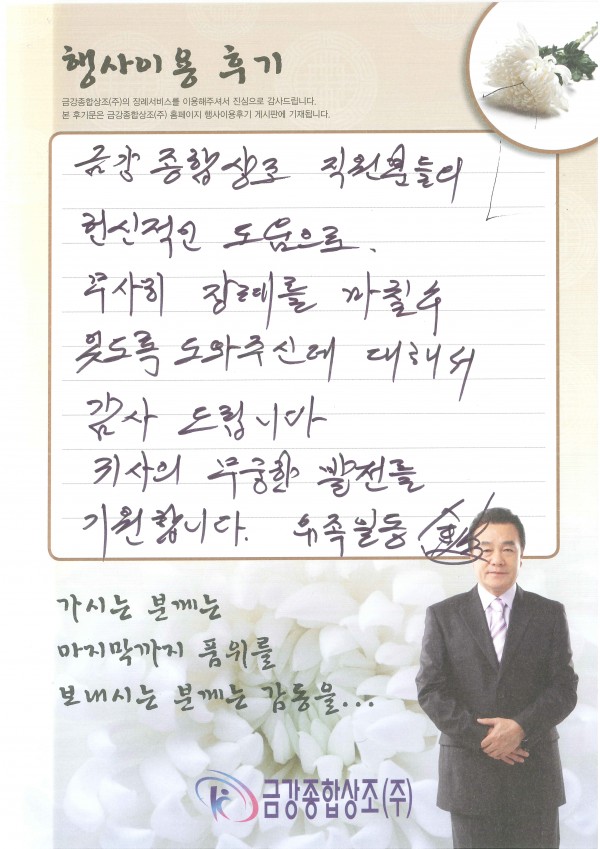 행사이용 후기
금강종합상조(주)의 장례서비스를 이용해주셔서 진심으로 감사드립니다.
본 후기문은 금강종합상조(주) 홈페이지 행사이용후기 게시판에 기재됩니다.
금강 종합상조 직원분들의
헌신적인 도움으로.
무사히 장례를 마칠수
있도록 도와주신데 대해서
감사 드립니다
귀사의 무궁한 발전를
기원합니다. 유족일동
가시는 분께는
마지막까지 품위를
보내시는 분께는 감동을...
금강종합상조(주)